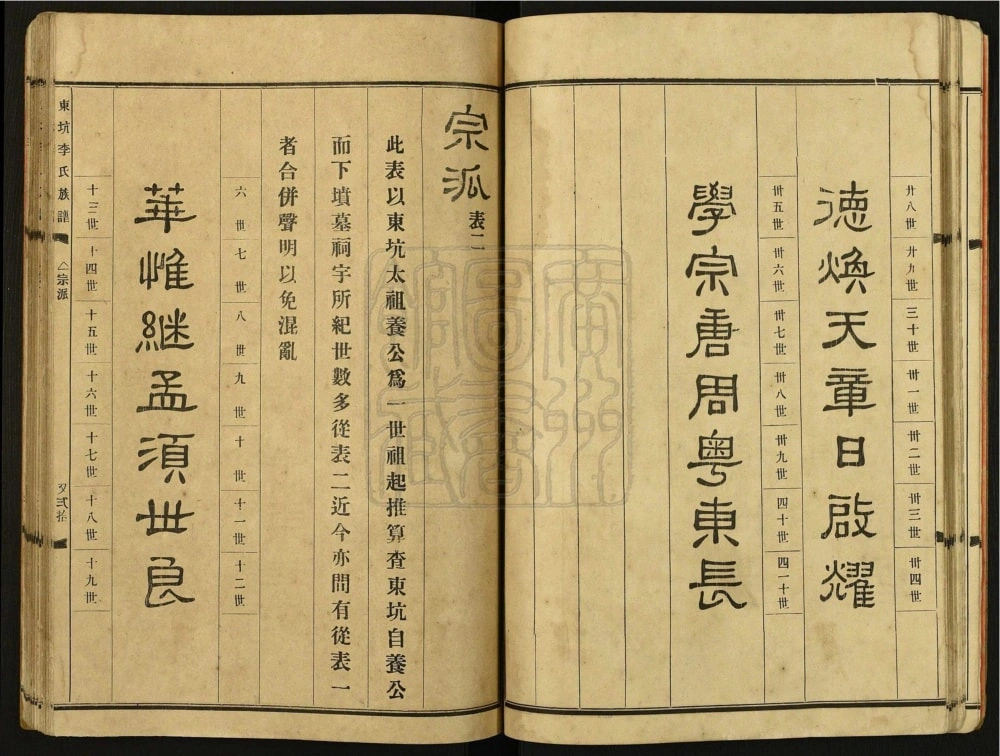 廿八世 廿九世 三十世 卅一世 卅二世 卅三世 卅四世
德煥天章日啟耀
卅五世 卅六世 卅七世 卅八世 卅九世 四十世 四一十世
學宗唐周粵東長
宗派 表二
此表以東坑太祖養公爲一世祖起推算查東坑自養公
而下墳墓祠宇所紀世數多從表二近今亦間有從表一
者合併聲明以免混亂
六世 七世 八世 九世 十世 十一世 十二世
華惟継孟須世良
十三世 十四世 十五世 十六世 十七世 十八世 十九世
東坑李氏族譜
宗派
弍拾
廣州圖書館藏